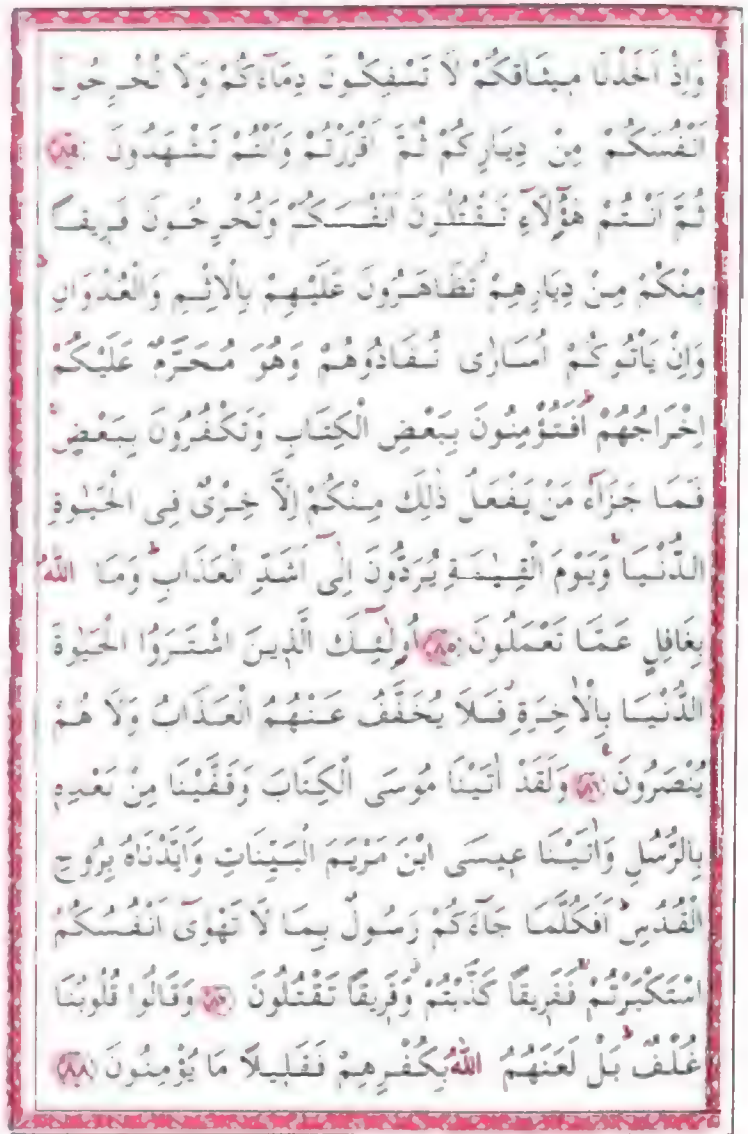 وَاِذْ اَخَذْنَا مٖيثَاقَكُمْ لَا تَسْفِكُونَ دِمَٓاءَكُمْ وَلَا تُخْرِجُونَ
اَنْفُسَكُمْ مِنْ دِيَارِكُمْ ثُمَّ اَقْرَرْتُمْ وَاَنْتُمْ تَشْهَدُونَ ﴿٨٤﴾
ثُمَّ اَنْتُمْ هٰٓؤُ۬لَٓاءِ تَقْتُلُونَ اَنْفُسَكُمْ وَتُخْرِجُونَ فَرٖيقًا
مِنْكُمْ مِنْ دِيَارِهِمْۘ تَظَاهَرُونَ عَلَيْهِمْ بِالْاِثْمِ وَالْعُدْوَانِۜ
وَاِنْ يَأْتُوكُمْ اُسَارٰى تُفَادُوهُمْ وَهُوَ مُحَرَّمٌ عَلَيْكُمْ
اِخْرَاجُهُمْۜ اَفَتُؤْمِنُونَ بِبَعْضِ الْكِتَابِ وَتَكْفُرُونَ بِبَعْضٍۚ
فَمَا جَزَٓاءُ مَنْ يَفْعَلُ ذٰلِكَ مِنْكُمْ اِلَّا خِزْيٌ فِي الْحَيٰوةِ
الدُّنْيَاۚ وَيَوْمَ الْقِيٰمَةِ يُرَدُّونَ اِلٰٓى اَشَدِّ الْعَذَابِۜ وَمَا اللّٰهُ
بِغَافِلٍ عَمَّا تَعْمَلُونَ ﴿٨٥﴾ اُو۬لٰٓئِكَ الَّذٖينَ اشْتَرَوُا الْحَيٰوةَ
الدُّنْيَا بِالْاٰخِرَةِۘ فَلَا يُخَفَّفُ عَنْهُمُ الْعَذَابُ وَلَا هُمْ
يُنْصَرُونَ۟ ﴿٨٦﴾ وَلَقَدْ اٰتَيْنَا مُوسَى الْكِتَابَ وَقَفَّيْنَا مِنْ بَعْدِهٖ
بِالرُّسُلِ وَاٰتَيْنَا عٖيسَى ابْنَ مَرْيَمَ الْبَيِّنَاتِ وَاَيَّدْنَاهُ بِرُوحِ
الْقُدُسِۜ اَفَكُلَّمَا جَٓاءَكُمْ رَسُولٌ بِمَا لَا تَهْوٰٓى اَنْفُسُكُمْ
اسْتَكْبَرْتُمْۚ فَفَرٖيقًا كَذَّبْتُمْۘ وَفَرٖيقًا تَقْتُلُونَ ﴿٨٧﴾ وَقَالُوا قُلُوبُنَا
غُلْفٌۜ بَلْ لَعَنَهُمُ اللّٰهُ بِكُفْرِهِمْ فَقَلٖيلًا مَا يُؤْمِنُونَ ﴿٨٨﴾